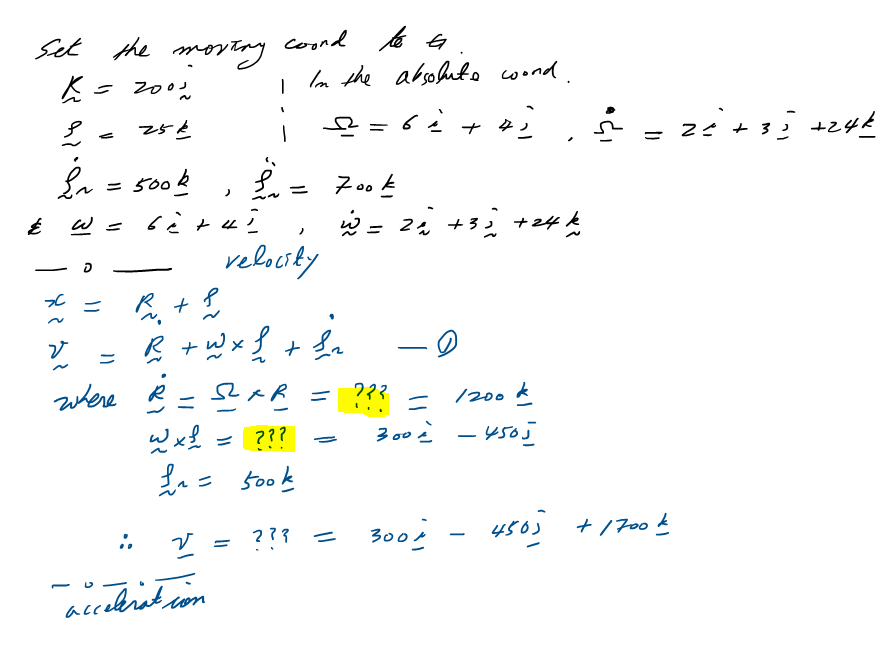 Set the moving coord to G.
R = 200j | In the absolute coord.
ρ = 25k | Ω = 6i + 4j , Ω̇ = 2i + 3j + 24k
ρ̇r = 500k , ρ̈r = 700k
& ω = 6i + 4j , ω̇ = 2i + 3j + 24k
— o — velocity
x = R + ρ
v = Ṙ + ω × ρ + ρ̇r — ①
where Ṙ = Ω × R = ??? = 1200k
ω × ρ = ??? = 300i - 450j
ρr = 500k
∴ v = ??? = 300i - 450j + 1700k
— o — . —
acceleration